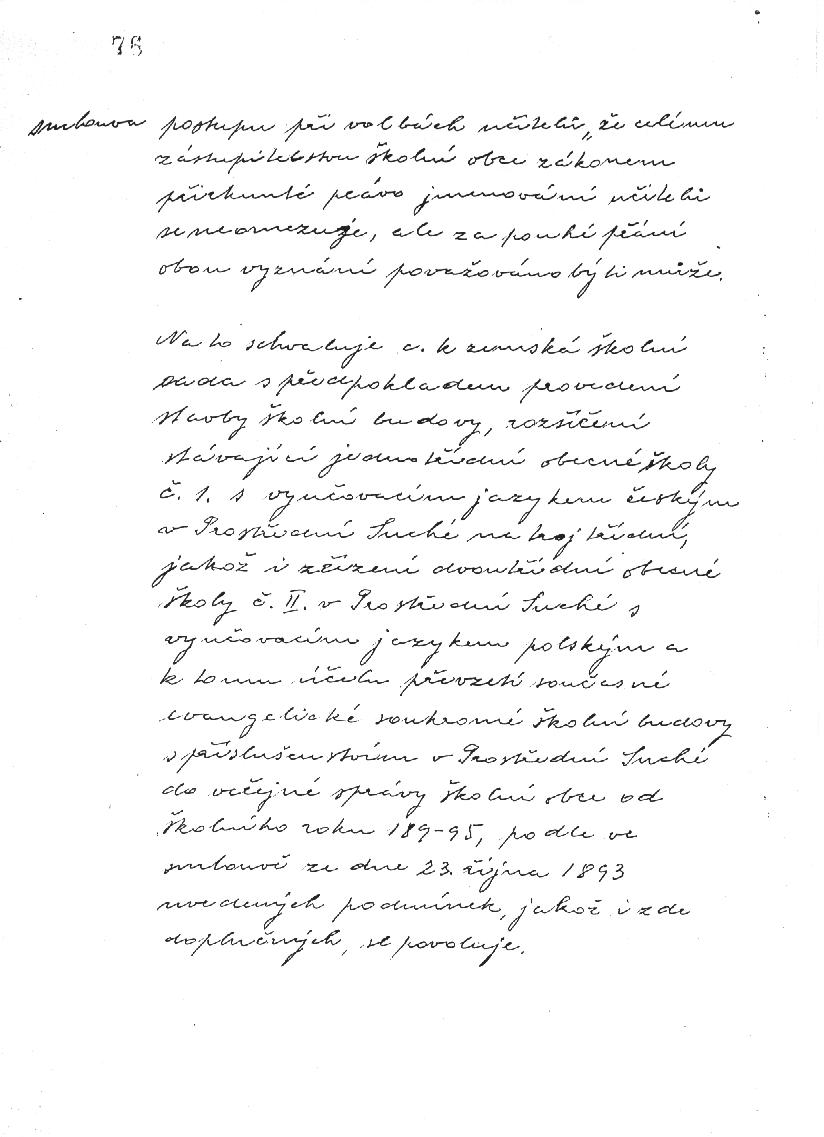 76
smlouva postupu při volbách učitelů, že celému
zástupitelstvu školní obce zákonem
přiřknuté právo jmenování učitelů
se neomezuje, ale za pouhé přání
obou vyznání považováno býti může.
Na to schvaluje c. k zemská školní
rada s předpokladem provedení
stavby školní budovy, rozšíření
stávající jednotřídní obecné školy
č. 1. s vyučovacím jazykem českým
v Prostřední Suché na trojtřídní,
jakož i zřízení dvoutřídní obecné
školy č. II. v Prostřední Suché s
vyučovacím jazykem polským a
k tomu účelu převzetí současné
evangelické soukromé školní budovy
s příslušenstvím v Prostřední Suché
do veřejné správy školní obce od
školního roku 189-95, podle ve
smlouvě ze dne 23. října 1893
uvedených podmínek, jakož i zde
doplněných, se povoluje.